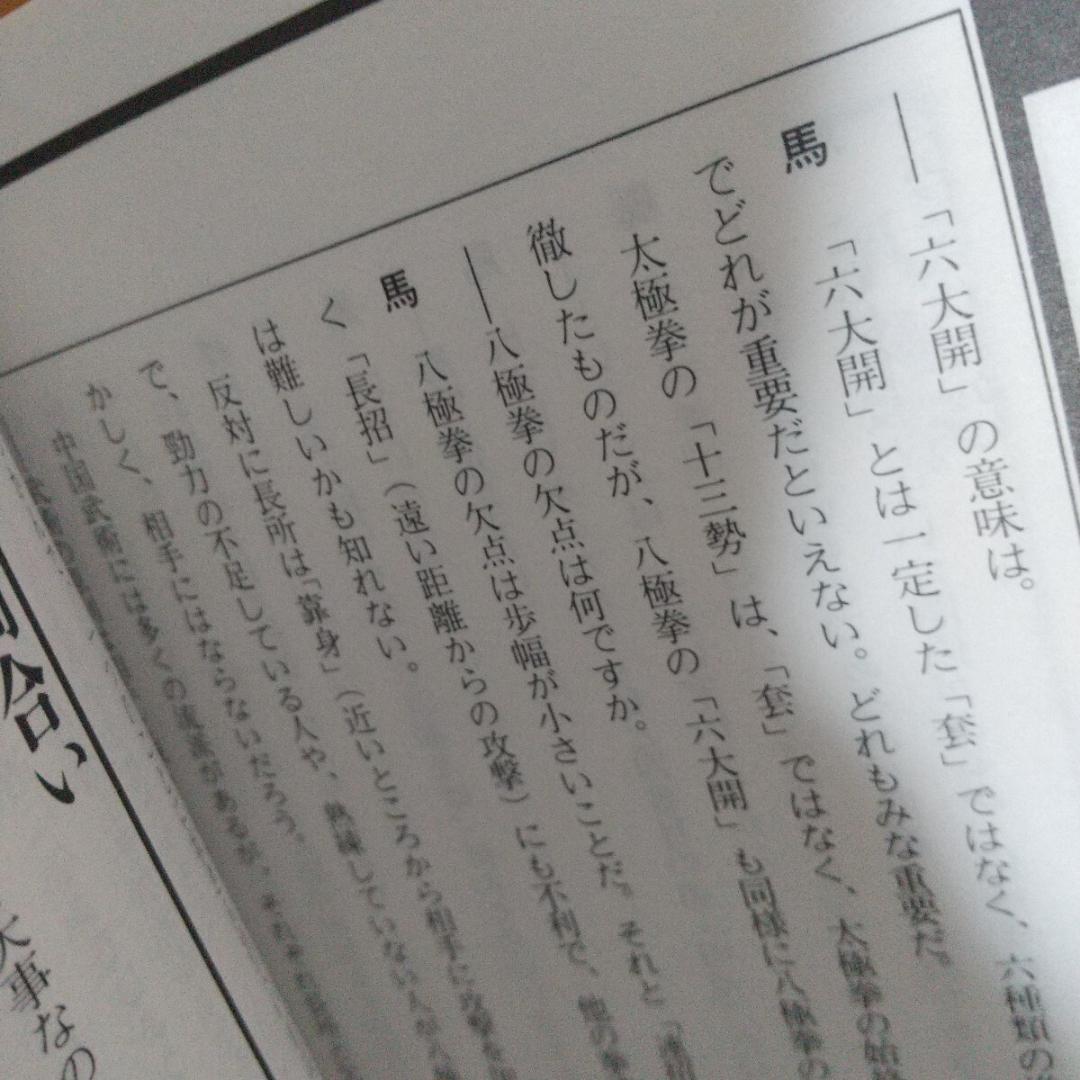 ――「六大開」の意味は。
馬 「六大開」とは一定した「套」ではなく、六種類の
でどれが重要だといえない。どれもみな重要だ。
太極拳の「十三勢」は、「套」ではなく、太極拳の始
徹したものだが、八極拳の「六大開」も同様に八極拳の
――八極拳の欠点は何ですか。
馬 八極拳の欠点は歩幅が小さいことだ。それと「連
く「長招」（遠い距離からの攻撃）にも不利で、他の拳
は難しいかも知れない。
反対に長所は「靠身」（近いところから相手に攻撃を
で、勁力の不足している人や、熟練していない人が八
かしく、相手にはならないだろう。
中国武術には多くの流派があるが、
合い
大事なの